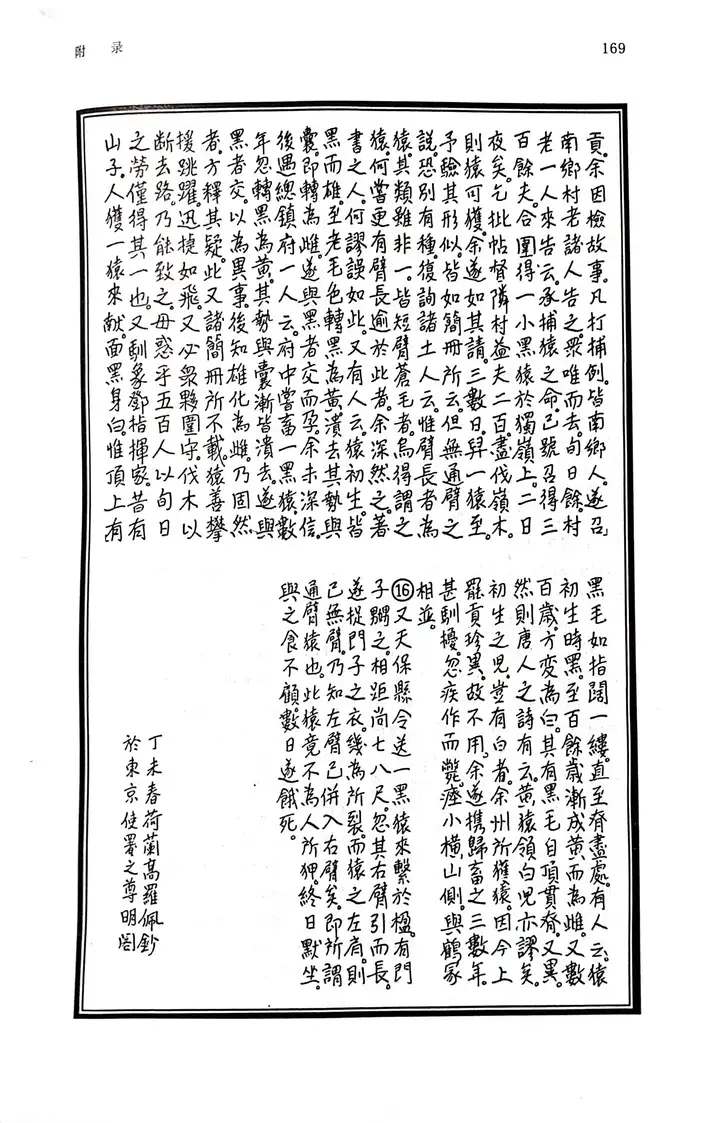 附录
169
貢。余因檢故事。凡打捕例。皆南鄉人。遂召
南鄉村老諸人告之。衆唯而去。旬日餘。村
老一人來告云。承捕猿之命。已號召得三
百餘夫。合圍得一小黑猿於獨嶺上。二日
夜矣。乞批帖督隣村益夫二百。盡伐嶺木。
則猿可獲。余遂如其請。三數日。舁一猿至。
予驗其形似。皆如簡冊所云。但無通臂之
說。恐別有種。復詢諸土人云。惟臂長者為
猿。其類雖非一。皆短臂蒼毛者。烏得謂之
猿。何嘗更有臂長逾於此者。余深然之。著
書之人。何謬誤如此。又有人云。猿初生。皆
黑而雄。至老毛色轉黑為黃。潰去其勢與
囊。即轉為雌。遂與黑者交而孕。余未深信。
後遇總鎮府一人云。府中嘗畜一黑猿。數
年忽轉黑為黃。其勢與囊漸皆潰去。遂與
黑者交。以為異事。後知雄化為雌。乃固然
者。方釋其疑。此又諸簡冊所不載。猿善攀
援跳躍。迅捷如飛。又必衆夥圍守。伐木以
断去路。乃能致之。毋惑乎五百人以旬日
之勞。僅得其一也。又馴象鄧指揮家。昔有
山子。人獲一猿來献。面黑身白。惟頂上有
黑毛如指闊一縷。直至脊盡處。有人云。猿
初生時黑。至百餘歲漸成黃而為雌。又數
百歲。方変為白。其有黑毛自頂貫脊。又異。
然則唐人之詩有云。黃猿領白兒亦謬矣。
初生之児。豈有白者。余州所獲猿。因今上
罷貢珍異。故不用。余遂攜歸畜之三數年。
甚馴擾。忽疾作而斃。瘞小橫山側。與鶴冢
相並。
⑯又天保縣令送一黑猿來。繫於楹。有門
子嬲之。相距尚七八尺。忽其右臂引而長。
遂捉門子之衣。幾為所裂。而猿之左肩。則
已無臂。乃知左臂已併入右臂矣。即所謂
通臂猿也。此猿竟不為人所狎。終日默坐。
與之食不顧。數日遂餓死。
丁未春荷蘭高羅佩鈔
於東京使署之尊明閣